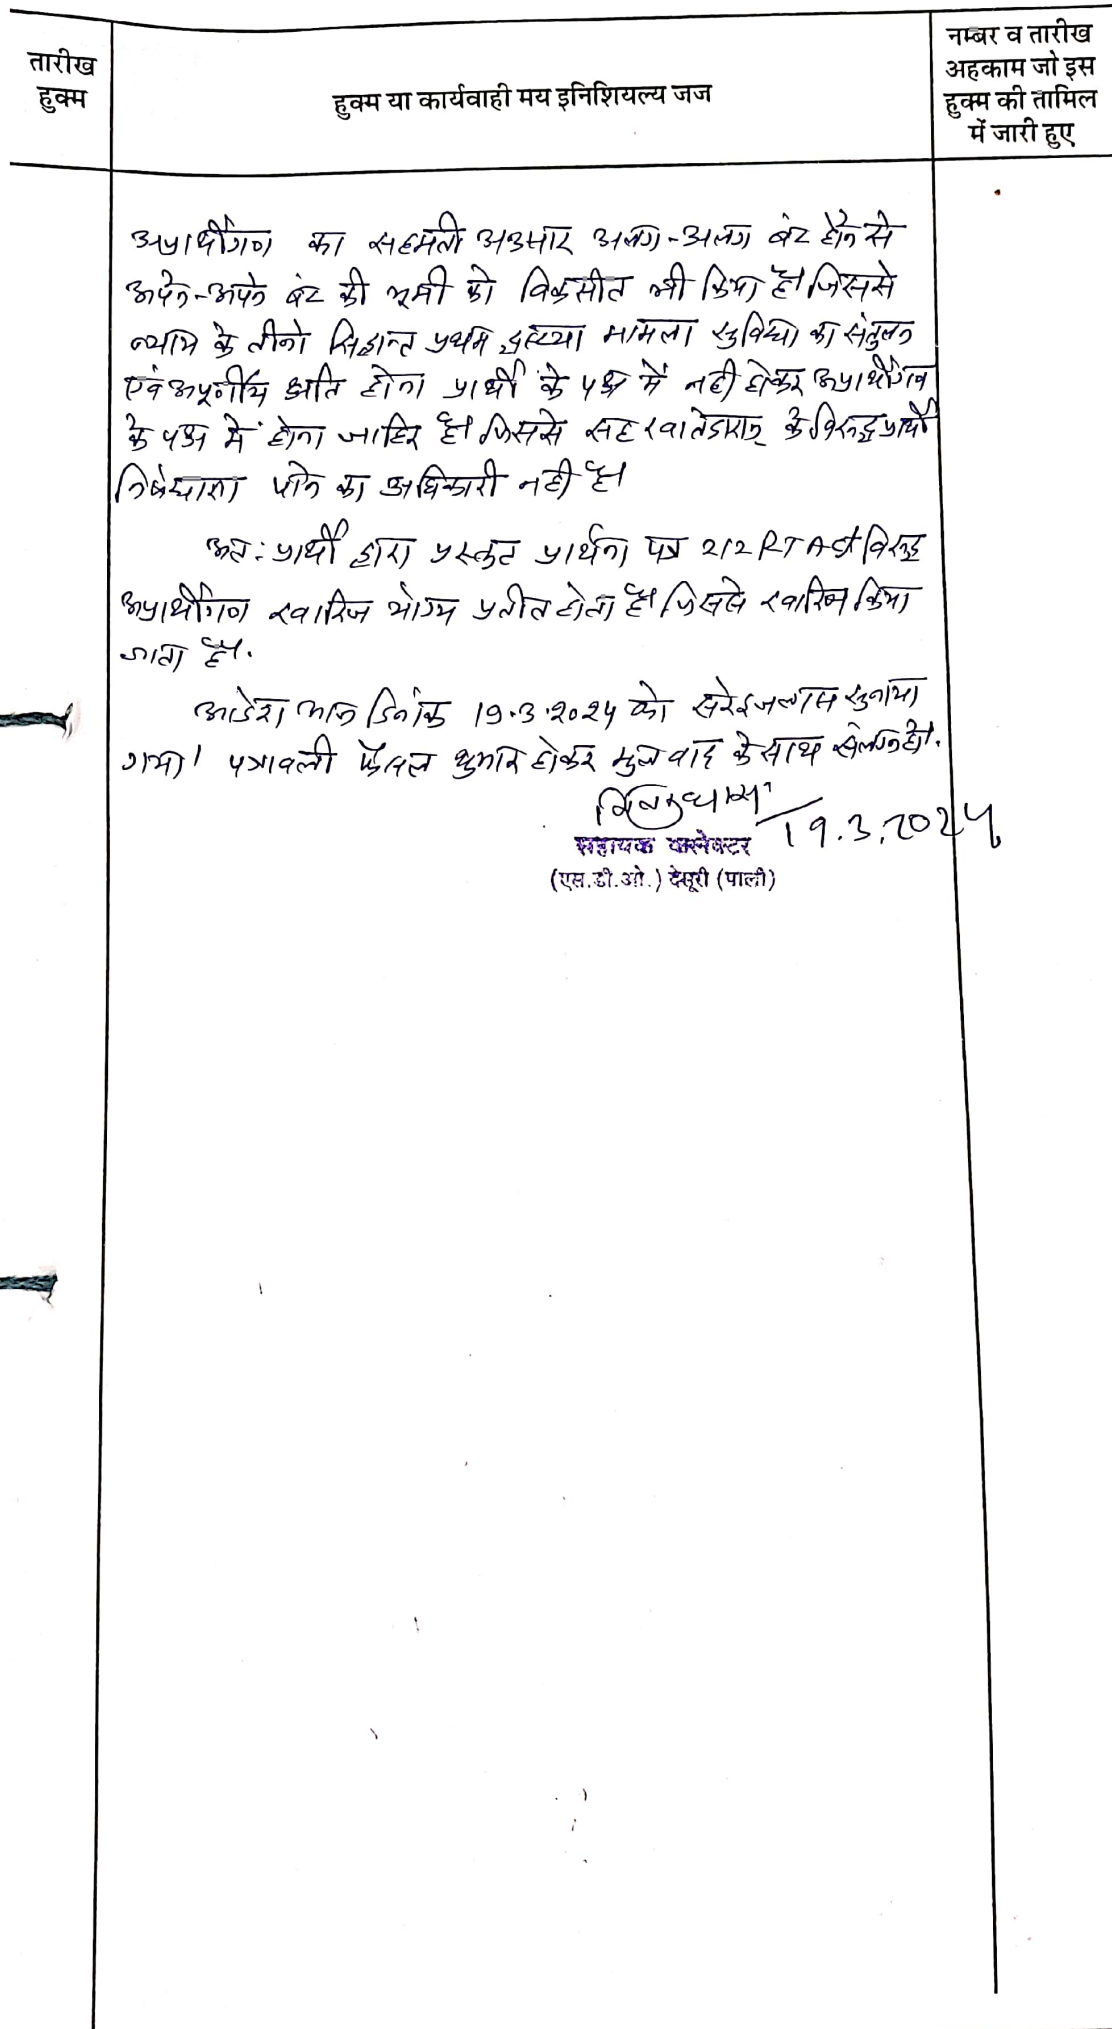 तारीख
हुक्म
हुक्म या कार्यवाही मय इनिशियल्य जज
नम्बर व तारीख
अहकाम जो इस
हुक्म की तामिल
में जारी हुए
अप्रार्थीगण का सहमती अनुसार अलग-अलग बंट होने से
अपने-अपने बंट की भूमी को विकसीत भी किया है। जिससे
न्याय के तीनो सिद्वान्त प्रथम दृष्टया मामला सुविधा का संतुलन
एवं अपूर्णीय क्षति होना प्रार्थी के पक्ष में नही होकर अप्रार्थीगण
के पक्ष में होना जाहिर है। जिससे सह खातेदारान् के विरूद्व प्रार्थी
निषेधाज्ञा पाने का अधिकारी नही है।
अतः प्रार्थी द्वारा प्रस्तुत प्रार्थना पत्र 212 RT Act विरूद्व
अप्रार्थीगण खारिज योग्य प्रतीत होता है। जिससे खारिज किया
जाता है.
आदेश आज दिनांक 19.3.2024 को सरेइजलास सुनाया
गया। पत्रावली फैसल शुमार होकर मुल वाद के साथ संलग्न हो.
19.3.2024
सहायक कलेक्टर
(एस.डी.ओ.) देसूरी (पाली)